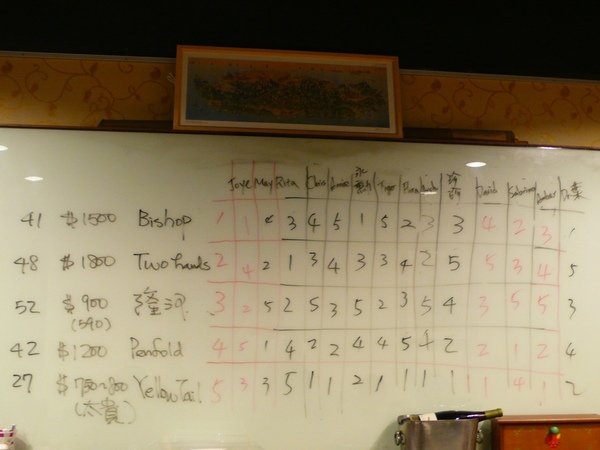 Joye May Rita Chris Annie Tiger David Sabrina Amber Dr.葉
41 $1500 Bishop 1 1 4 3 4 5 1 5 2 3 3 4 2 3 1
48 $1800 Two hands 2 4 2 1 3 4 3 3 4 2 5 5 3 4 5
52 $900 隆河 3 2 5 2 5 3 5 2 3 5 4 3 5 5 3
(590)
42 $1200 Penfold 4 5 1 4 2 2 4 4 5 4 2 2 1 2 4
27 $700~800 Yellow Tail 5 3 3 5 1 1 2 1 1 1 1 1 4 1 2
(太貴)